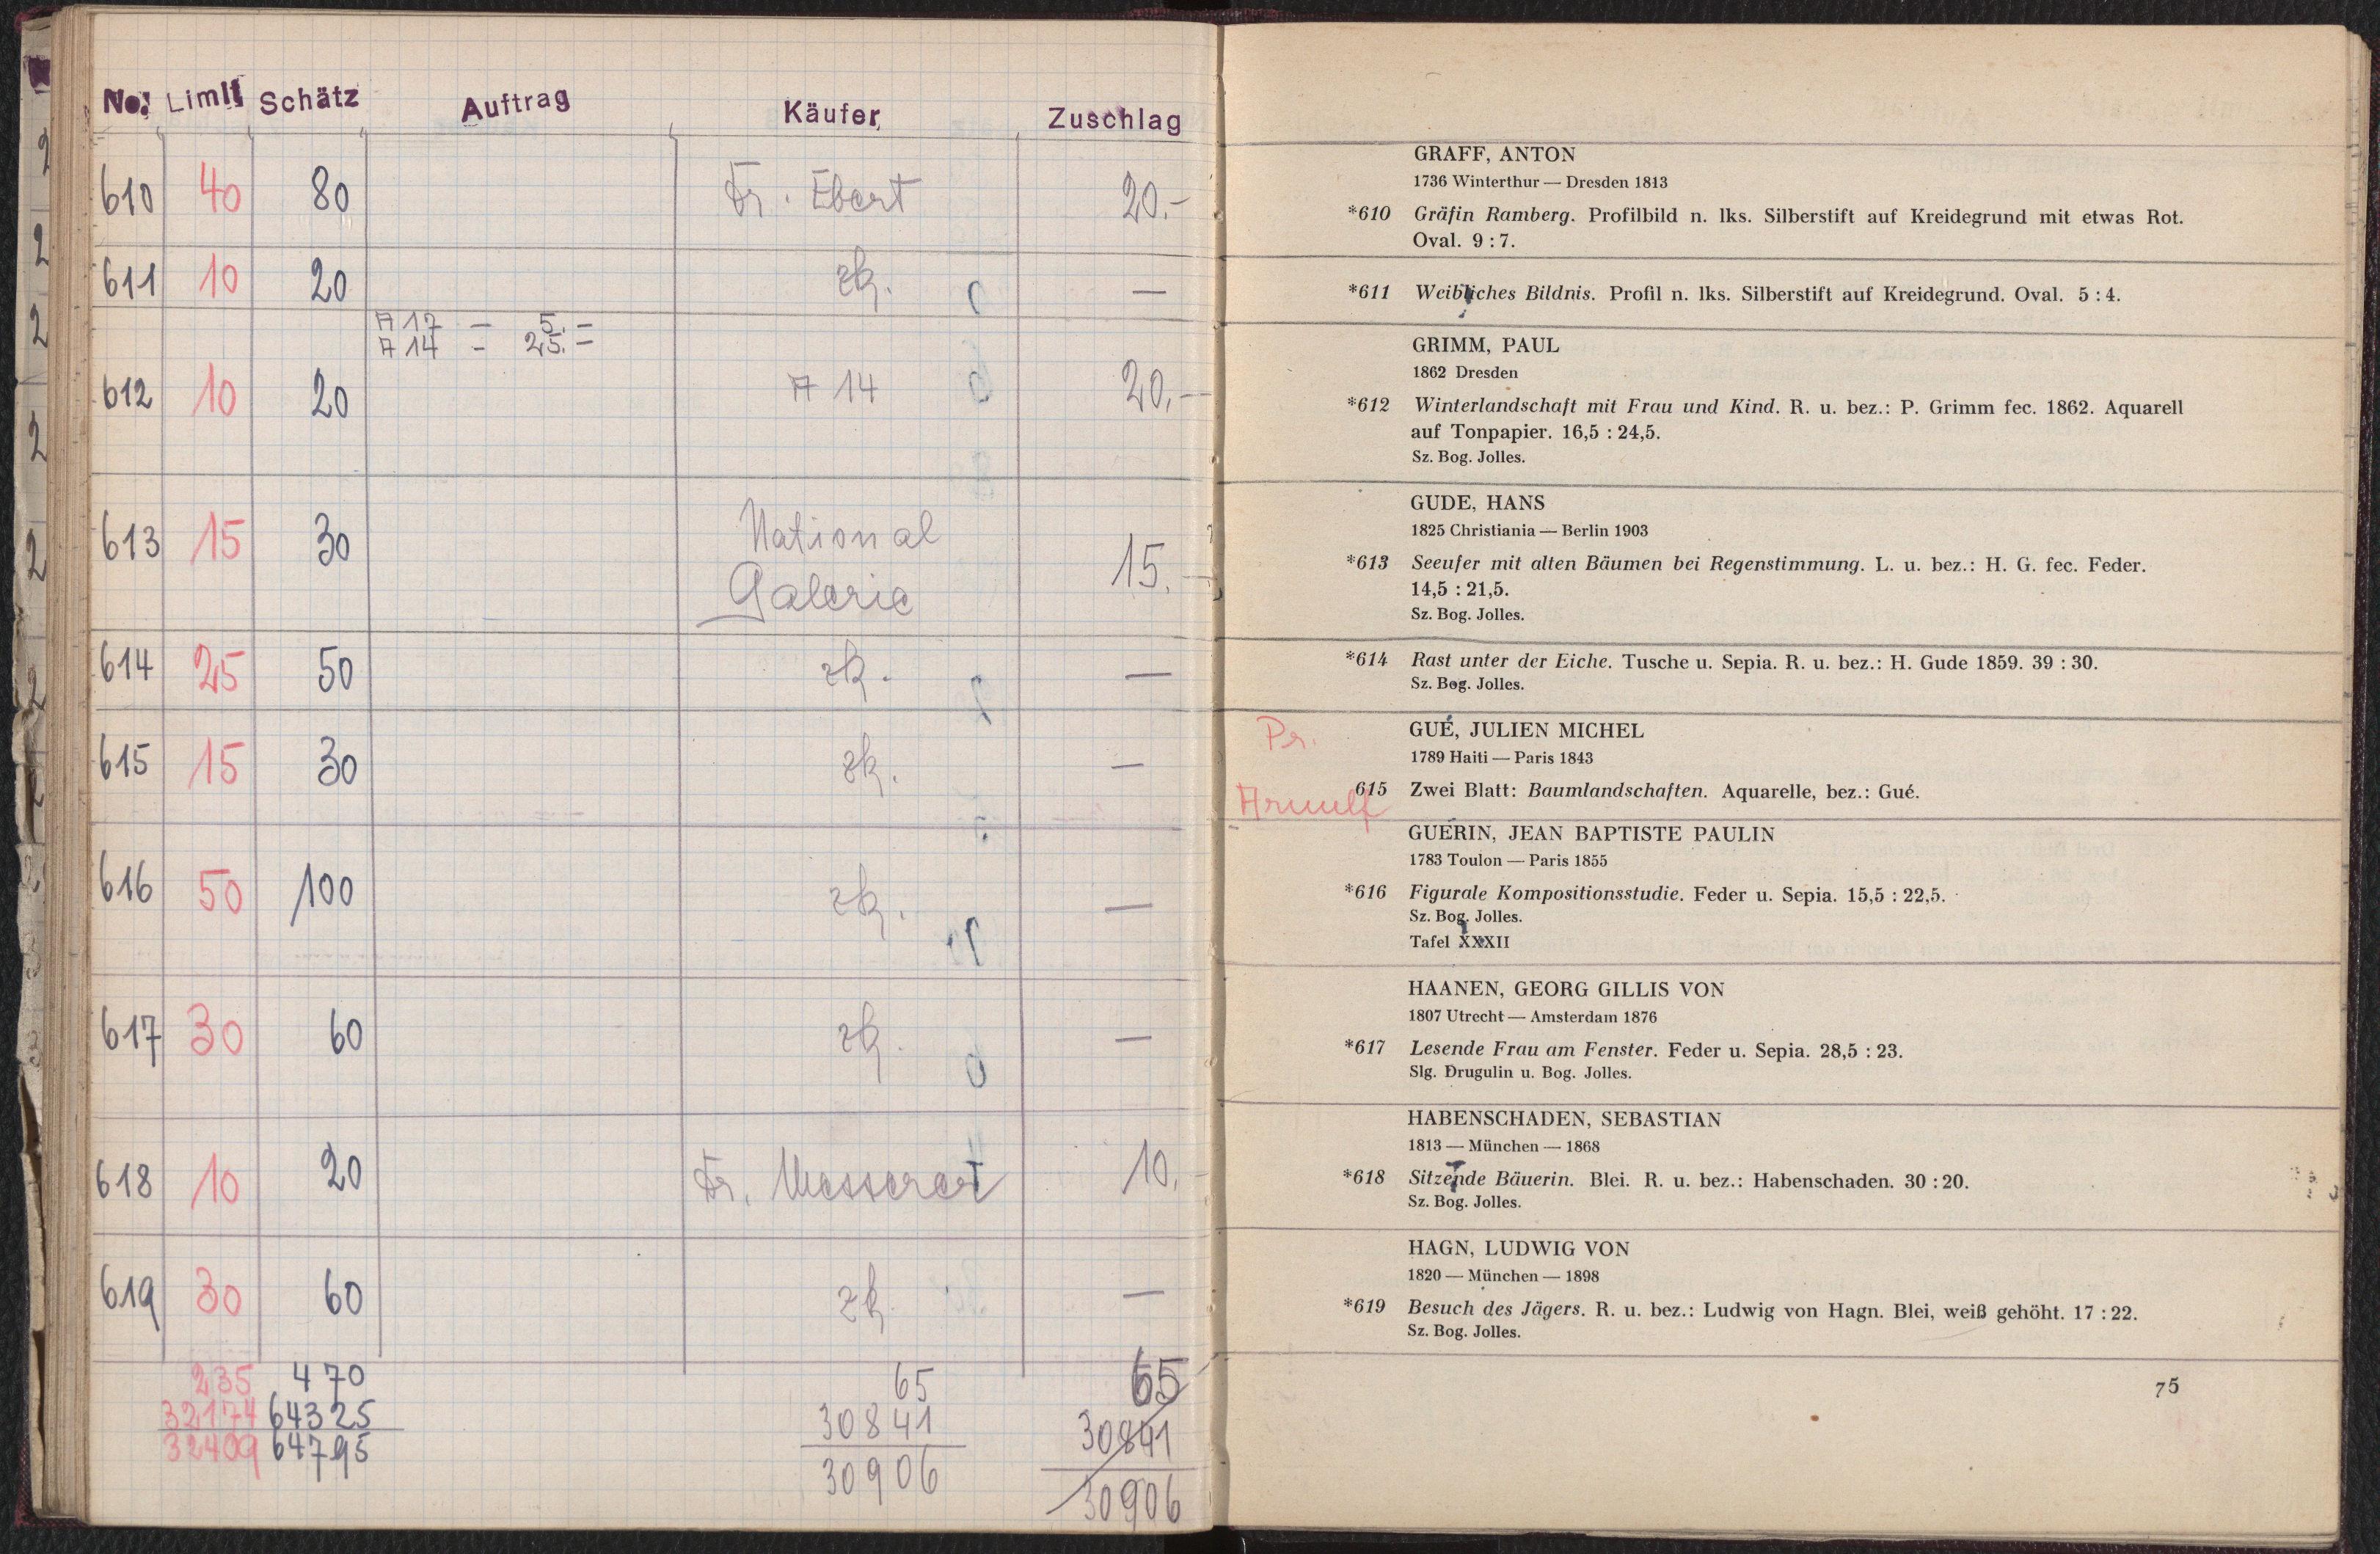 No. Limit Schätz Auftrag Käufer Zuschlag
610 40 80 Fr. Ebert 20.-
611 10 20 zk. —
A 17 - 5.-
A 14 - 25.-
612 10 20 A 14 20.-
613 15 30 National Galerie 15.-
614 25 50 zk. —
615 15 30 zk. —
616 50 100 zk. —
617 30 60 zk. —
618 10 20 Fr. Messerer 10.-
619 30 60 zk. —
235 470 65 65
32174 64325 30841 30841
32409 64795 30906 30906
GRAFF, ANTON
1736 Winterthur — Dresden 1813
*610 Gräfin Ramberg. Profilbild n. lks. Silberstift auf Kreidegrund mit etwas Rot.
Oval. 9 : 7.
*611 Weibliches Bildnis. Profil n. lks. Silberstift auf Kreidegrund. Oval. 5 : 4.
GRIMM, PAUL
1862 Dresden
*612 Winterlandschaft mit Frau und Kind. R. u. bez.: P. Grimm fec. 1862. Aquarell
auf Tonpapier. 16,5 : 24,5.
Sz. Bog. Jolles.
GUDE, HANS
1825 Christiania — Berlin 1903
*613 Seeufer mit alten Bäumen bei Regenstimmung. L. u. bez.: H. G. fec. Feder.
14,5 : 21,5.
Sz. Bog. Jolles.
*614 Rast unter der Eiche. Tusche u. Sepia. R. u. bez.: H. Gude 1859. 39 : 30.
Sz. Bog. Jolles.
Pr.
GUÉ, JULIEN MICHEL
1789 Haiti — Paris 1843
615 Zwei Blatt: Baumlandschaften. Aquarelle, bez.: Gué.
GUÉRIN, JEAN BAPTISTE PAULIN
1783 Toulon — Paris 1855
*616 Figurale Kompositionsstudie. Feder u. Sepia. 15,5 : 22,5.
Sz. Bog. Jolles.
Tafel XXXII
HAANEN, GEORG GILLIS VON
1807 Utrecht — Amsterdam 1876
*617 Lesende Frau am Fenster. Feder u. Sepia. 28,5 : 23.
Slg. Drugulin u. Bog. Jolles.
HABENSCHADEN, SEBASTIAN
1813 — München — 1868
*618 Sitzende Bäuerin. Blei. R. u. bez.: Habenschaden. 30 : 20.
Sz. Bog. Jolles.
HAGN, LUDWIG VON
1820 — München — 1898
*619 Besuch des Jägers. R. u. bez.: Ludwig von Hagn. Blei, weiß gehöht. 17 : 22.
Sz. Bog. Jolles.
75